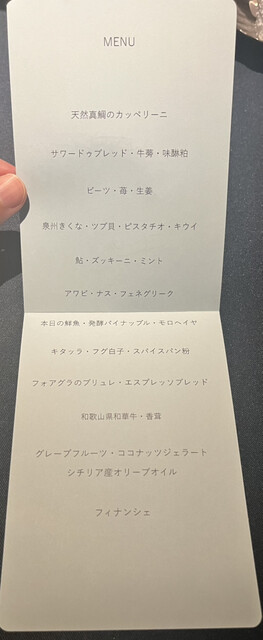 MENU
天然真鯛のカッペリーニ
サワードゥブレッド・牛蒡・味醂粕
ビーツ・苺・生姜
泉州きくな・ツブ貝・ピスタチオ・キウイ
鮎・ズッキーニ・ミント
アワビ・ナス・フェネグリーク
本日の鮮魚・発酵パイナップル・モロヘイヤ
キタッラ・フグ白子・スパイスパン粉
フォアグラのブリュレ・エスプレッソブレッド
和歌山県和華牛・香茸
グレープフルーツ・ココナッツジェラート
シチリア産オリーブオイル
フィナンシェ